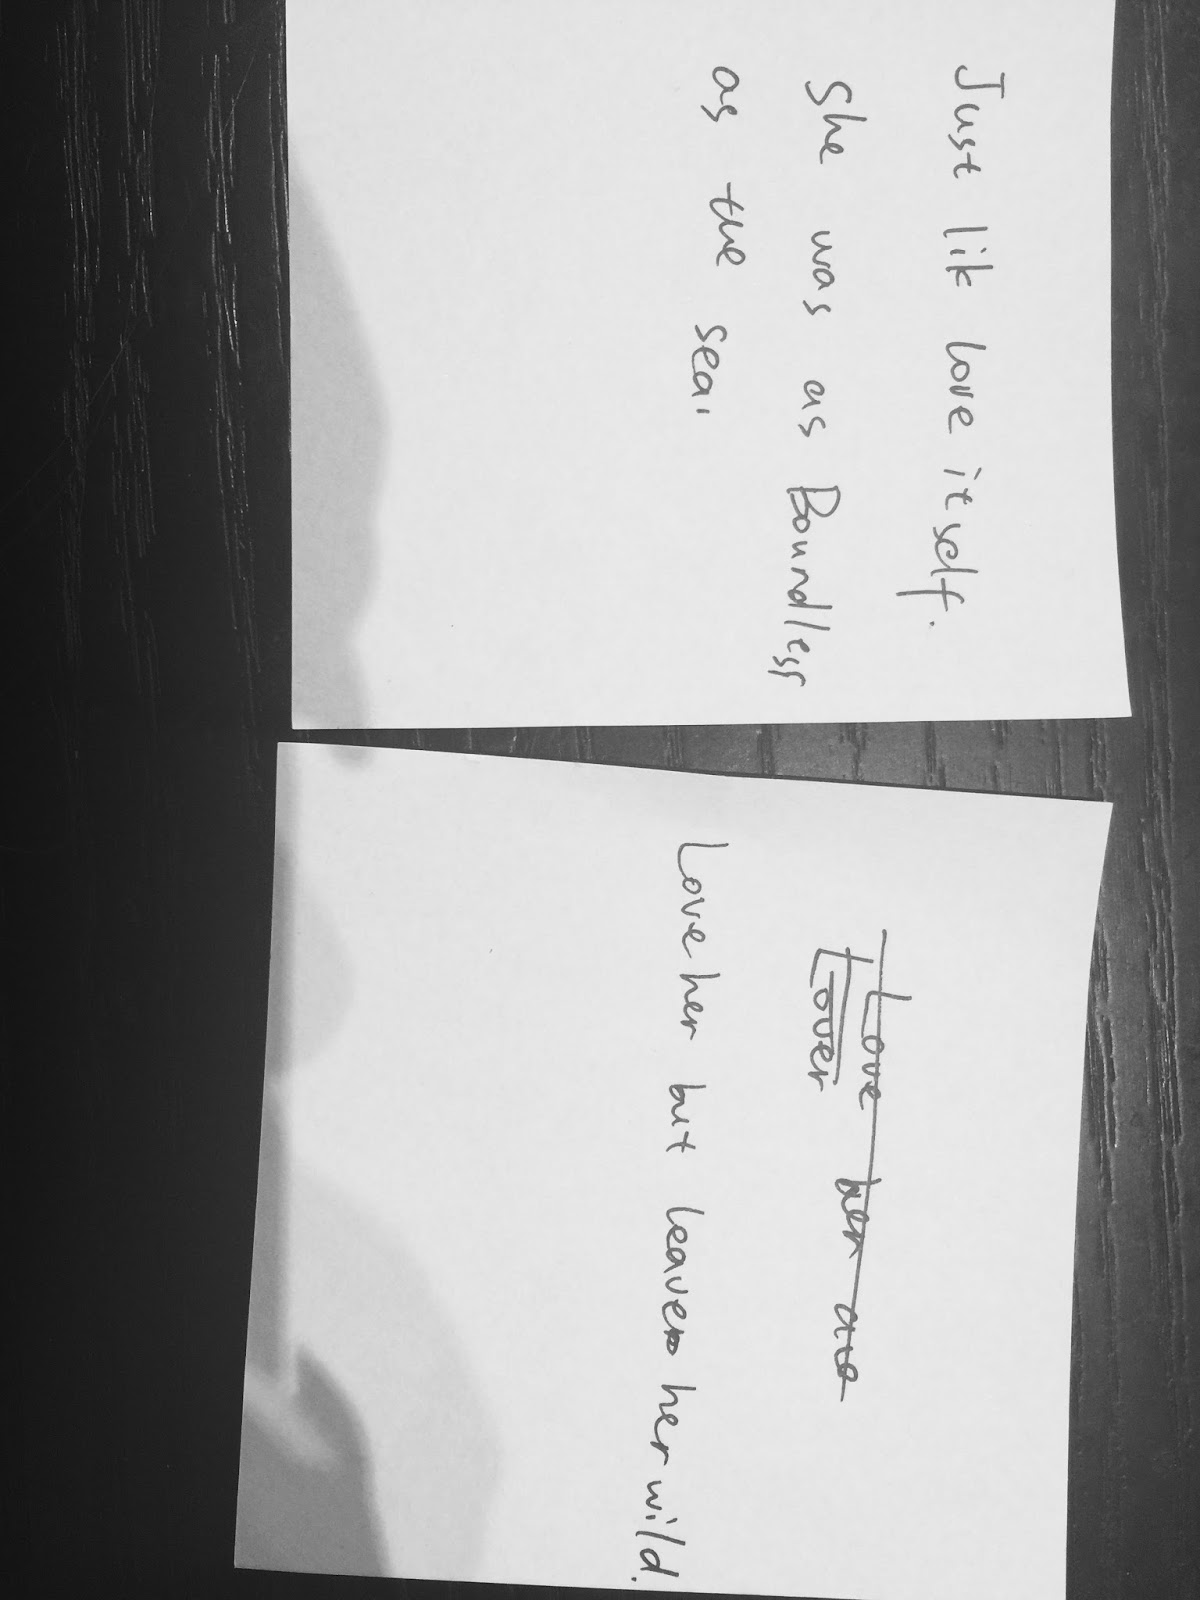 Just lik love itself.
She was as Boundless
as the sea,
Love her and
Lover
Love her but leave her wild.